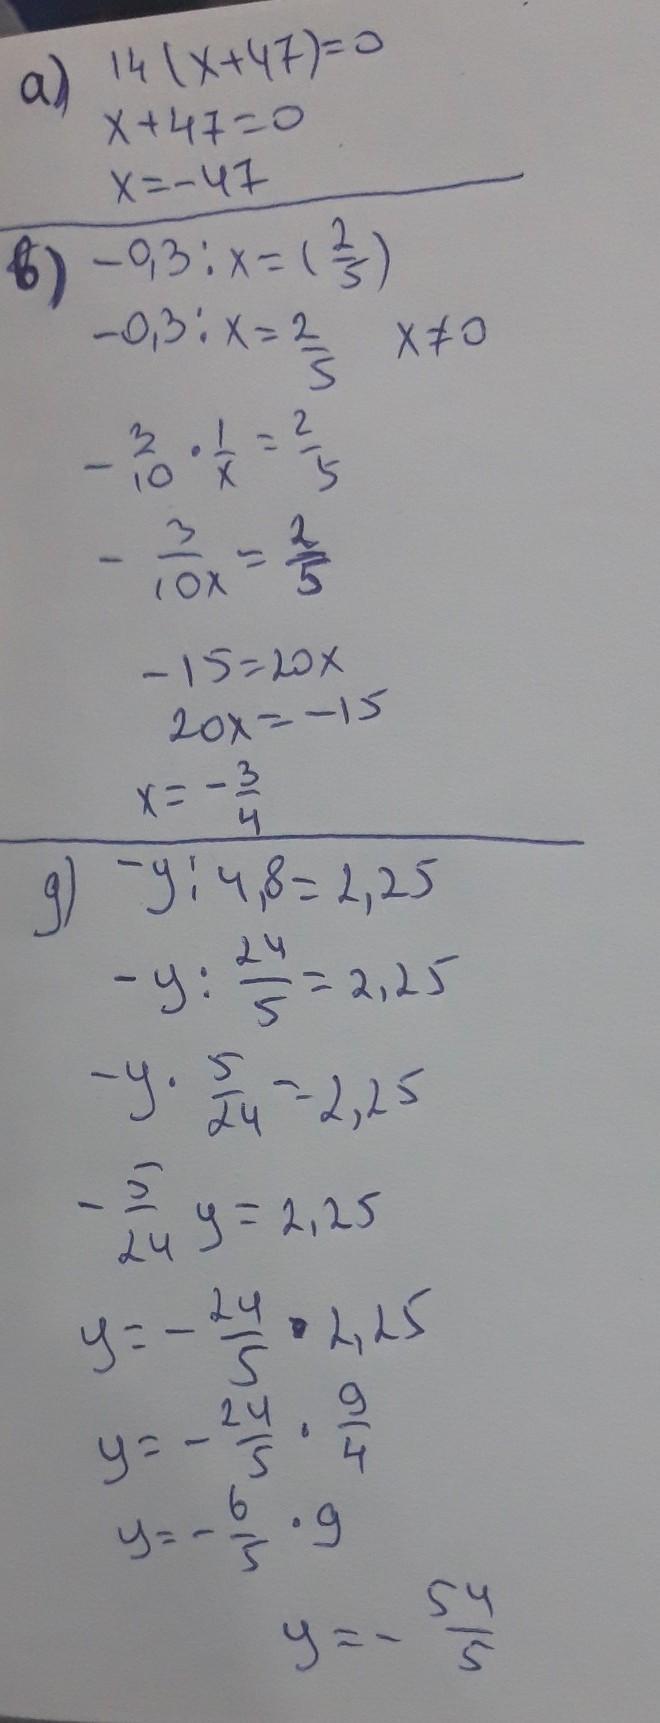 а) 14(x+47)=0
x+47=0
x=-47
б) -0,3:x=(2/5)
-0,3:x=2/5 x≠0
-3/10·1/x=2/5
-3/10x=2/5
-15=20x
20x=-15
x=-3/4
g) -y:4,8=2,25
-y:24/5=2,25
-y·5/24=2,25
-5/24 y=2,25
y=-24/5·2,25
y=-24/5·9/4
y=-6/5·9
y=-54/5